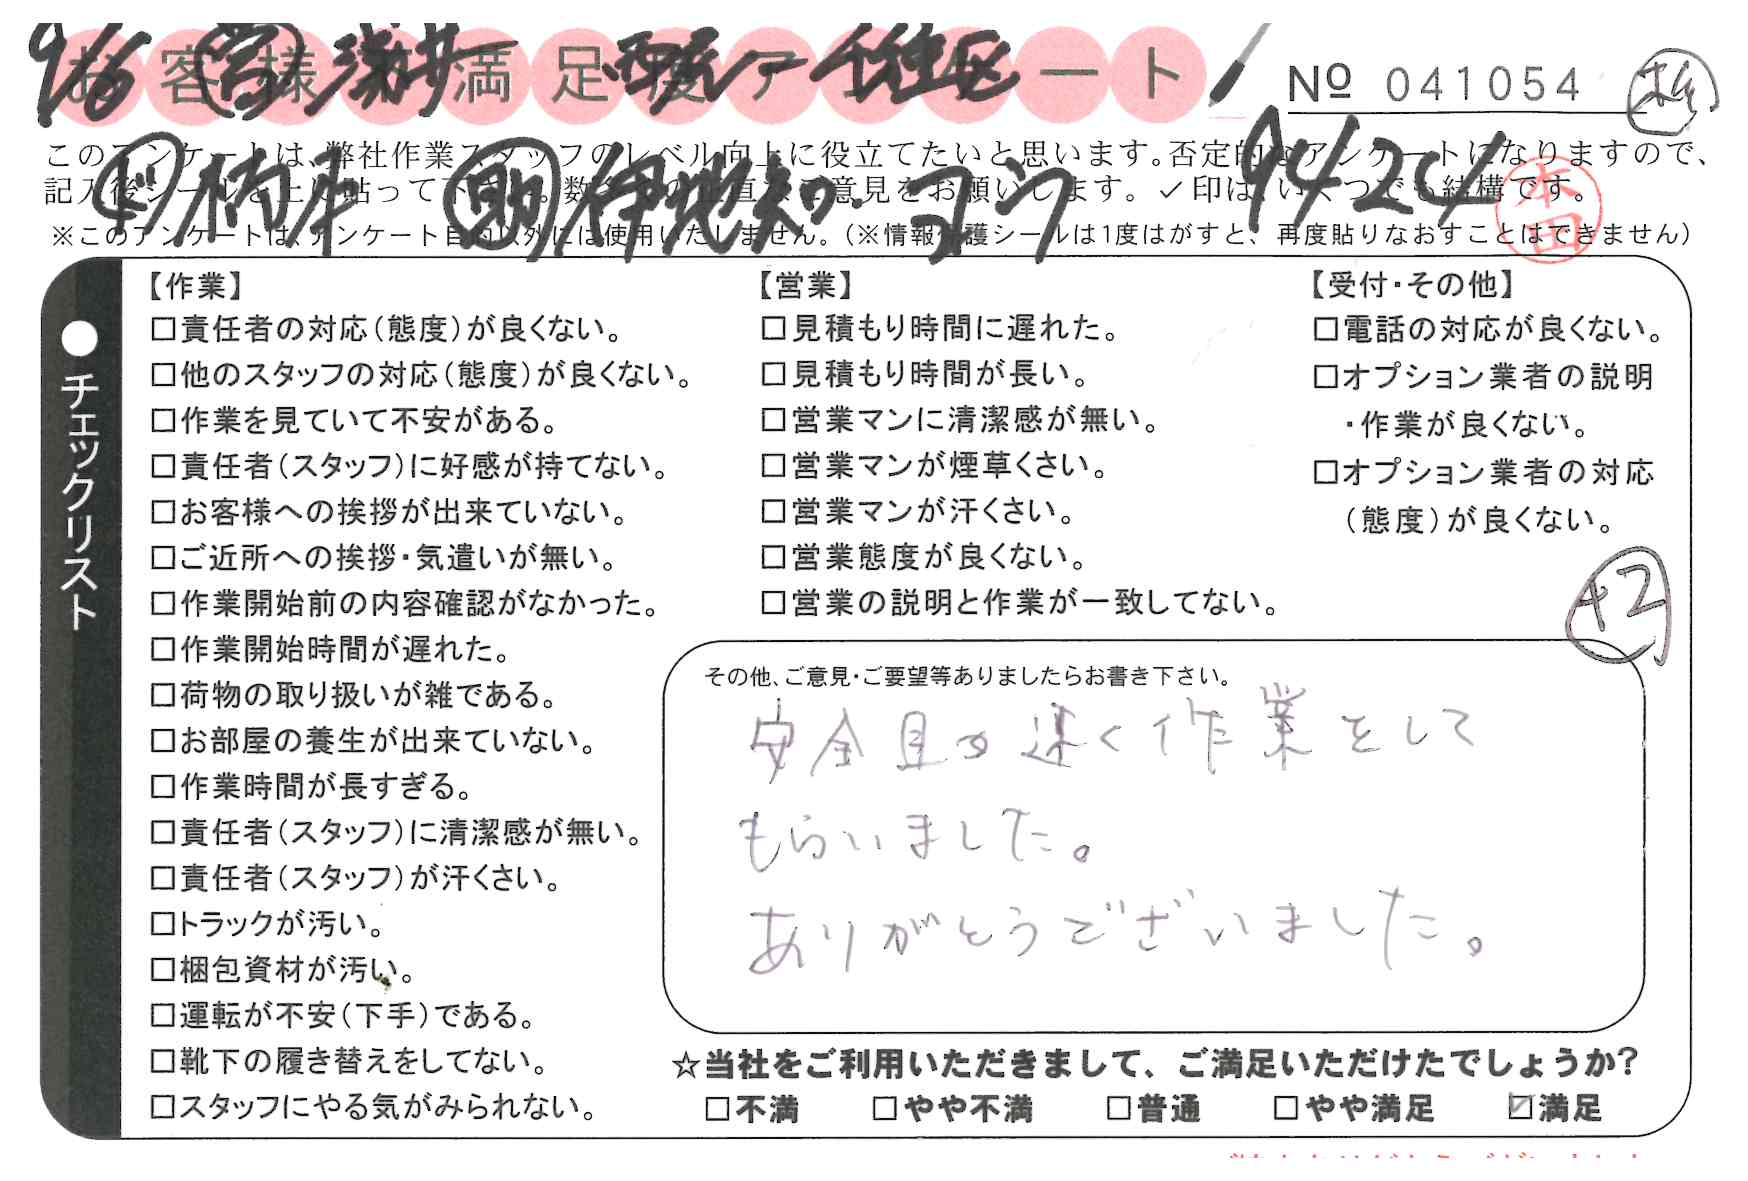 9/6 営 浅井
お客様満足度アンケート
№ 041054
このアンケートは、弊社作業スタッフのレベル向上に役立てたいと思います。否定的なアンケートになりますので、
記入後シールを上に貼って下さい。数多くの正直なご意見をお願いします。✓印は、いくつでも結構です。
※このアンケートは、アンケート目的以外には使用いたしません。(※情報保護シールは1度はがすと、再度貼りなおすことはできません)
伊地知・コシ
本田
●チェックリスト
【作業】
□責任者の対応(態度)が良くない。
□他のスタッフの対応(態度)が良くない。
□作業を見ていて不安がある。
□責任者(スタッフ)に好感が持てない。
□お客様への挨拶が出来ていない。
□ご近所への挨拶・気遣いが無い。
□作業開始前の内容確認がなかった。
□作業開始時間が遅れた。
□荷物の取り扱いが雑である。
□お部屋の養生が出来ていない。
□作業時間が長すぎる。
□責任者(スタッフ)に清潔感が無い。
□責任者(スタッフ)が汗くさい。
□トラックが汚い。
□梱包資材が汚い。
□運転が不安(下手)である。
□靴下の履き替えをしてない。
□スタッフにやる気がみられない。
【営業】
□見積もり時間に遅れた。
□見積もり時間が長い。
□営業マンに清潔感が無い。
□営業マンが煙草くさい。
□営業マンが汗くさい。
□営業態度が良くない。
□営業の説明と作業が一致してない。
【受付・その他】
□電話の対応が良くない。
□オプション業者の説明
・作業が良くない。
□オプション業者の対応
(態度)が良くない。
+2
その他、ご意見・ご要望等ありましたらお書き下さい。
安全且つ速く作業をして
もらいました。
ありがとうございました。
☆当社をご利用いただきまして、ご満足いただけたでしょうか?
□不満 □やや不満 □普通 □やや満足 ☑満足